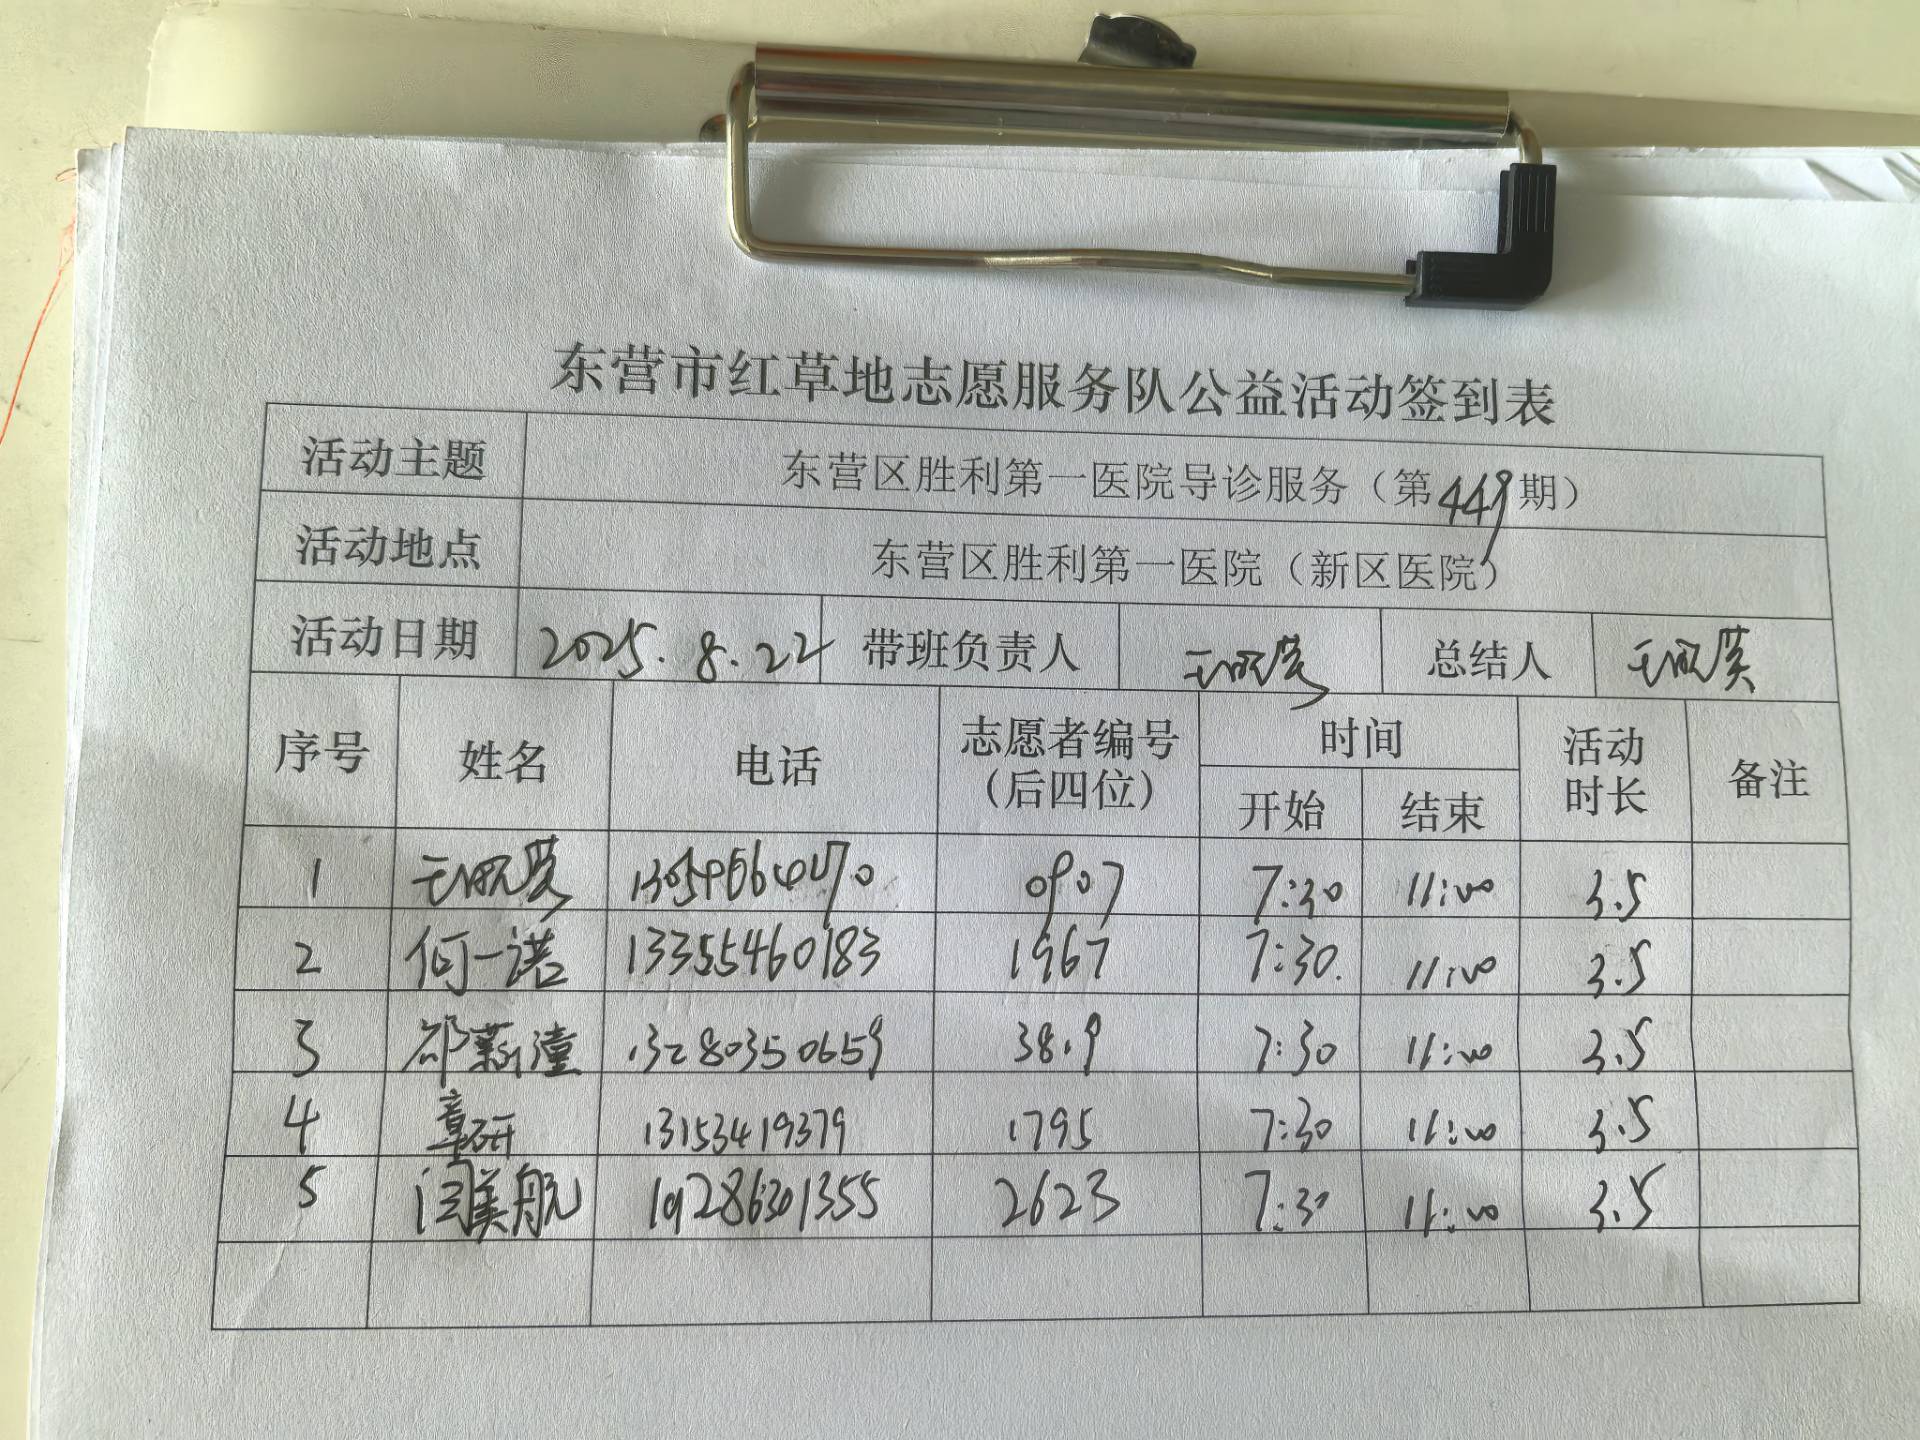 东营市红草地志愿服务队公益活动签到表
活动主题 东营区胜利第一医院导诊服务（第449期）
活动地点 东营区胜利第一医院（新区医院）
活动日期 2025.8.22 带班负责人 总结人
序号 姓名 电话 志愿者编号（后四位） 时间 开始 结束 活动时长 备注
1 0907 7:30 11:00 3.5
2 何一诺 13355460183 1967 7:30 11:00 3.5
3 13280350659 7:30 11:00 3.5
4 章研 13153419379 1795 7:30 11:00 3.5
5 闫美航 19286301355 2623 7:30 11:00 3.5